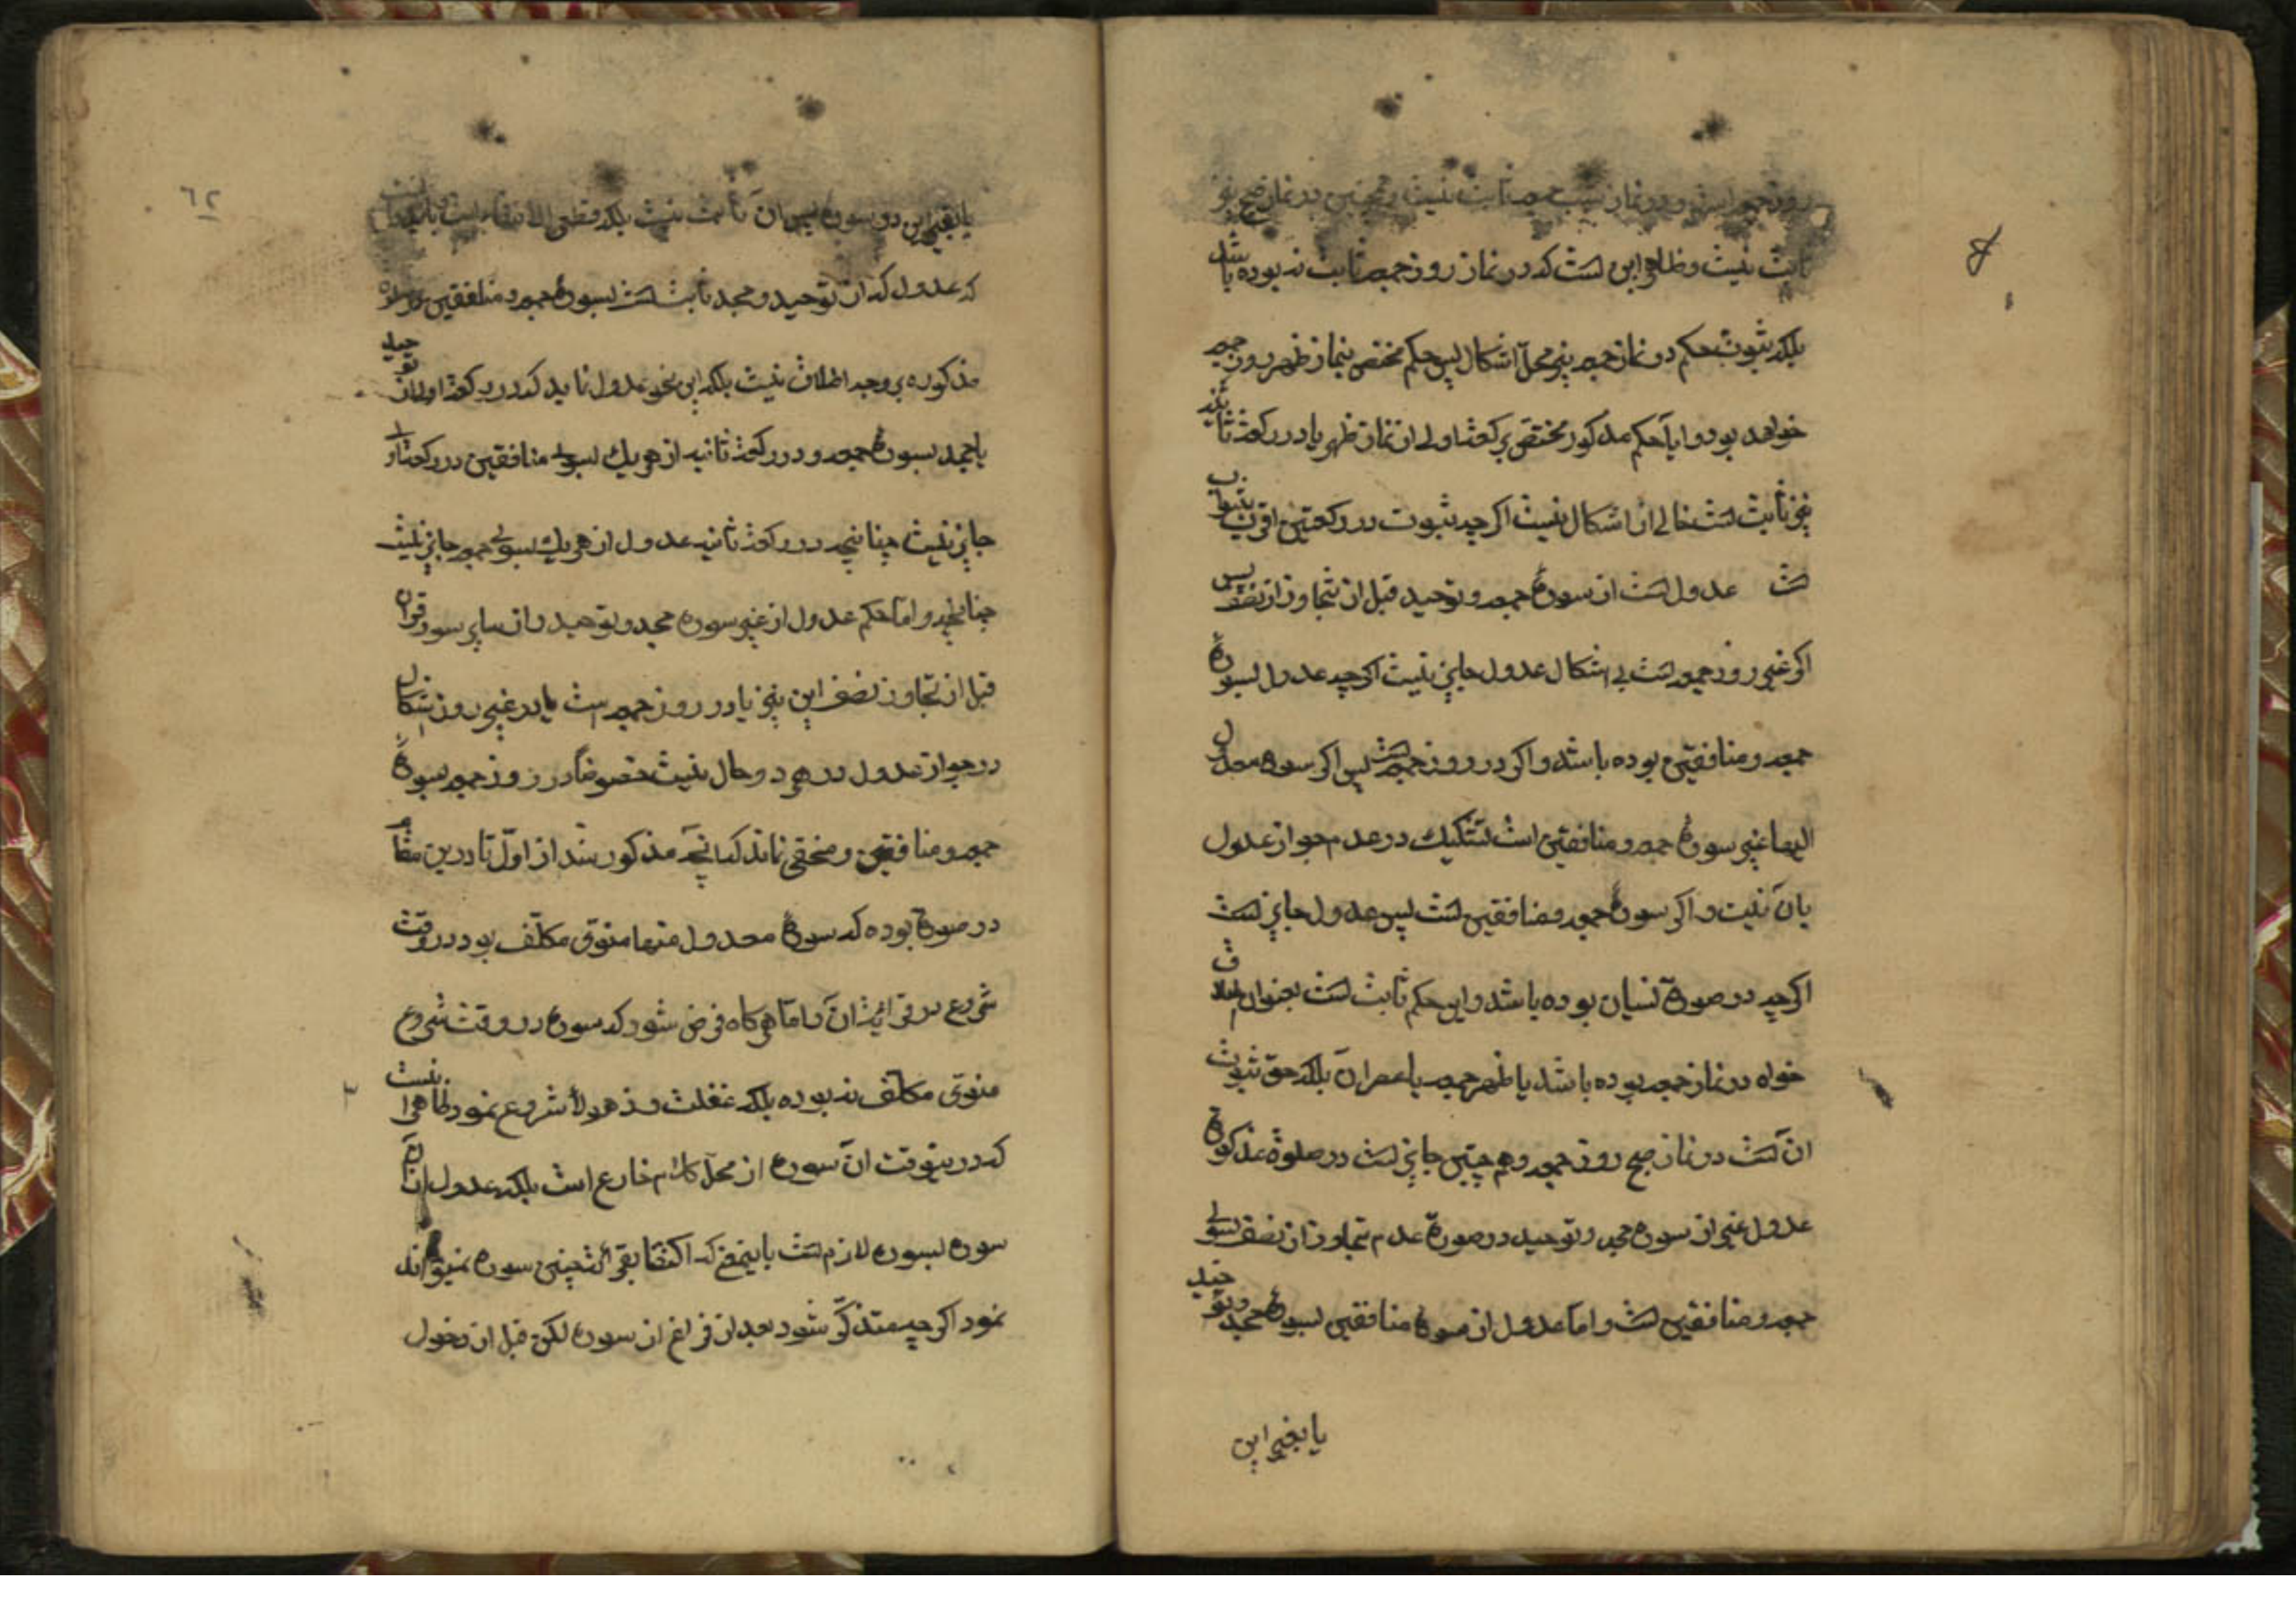 روز جمعه است و در نماز شب جمعه ثابت نیست و همچنین در نماز صبح نیز
ثابت نیست و ظاهر این است که در نماز روز جمعه ثابت نه بوده باشد
بلکه ثبوت حکم در نماز جمعه نیز محلّ اشکال پس حکم مختص بنماز ظهر روز جمعه
خواهد بود و ایا حکم مذکور مختص برکعت اولی از نماز ظهر یا در رکعت ثانیه
نیز ثابت است خالی از اشکال نیست اکر چه ثبوت در رکعتین اقرب
است عدول است از سورهٔ جمعه و توحید قبل از تجاوز از نصف پس
اکر غیر روز جمعه است بی اشکال عدول جایز نیست اکر چه عدول بسورهٔ
جمعه و منافقین بوده باشد و اکر در روز جمعه است پس اکر سوره معدول
الیها غیر سورهٔ جمعه و منافقین است تشکیک در عدم جواز عدول
بان نیست و اکر سورهٔ جمعه و منافقین است پس عدول جایز است
اکر چه در صورة نسیان بوده باشد و این حکم ثابت است بعنوان اطلاق
خواه در نماز جمعه بوده باشد یا ظهر جمعه یا عصر ان بلکه حق ثبوت
ان است در نماز صبح روز جمعه و هم چنین جایز است در صلوة مذکورة
عدول غیر از سوره جحد و توحید در صورة عدم تجاوز از نصف بسوی
جمعه و منافقین است و امّا عدول از سورهٔ منافقین بسورهٔ جحد و توحید
یا بغیر این
٦٢
یا بغیر این دو سوره پس ان ثابت نیست بلکه
که عدول که از توحید و جحد ثابت است بسورهٔ جمعه و منافقین در
مذکوره بر وجه اطلاق نیست بلکه این نحو عدول نماید که در رکعة اولی از توحید
یا جحد بسورهٔ جمعه و در رکعة ثانیه از هر یك بسوی منافقین در رکعت اولی
جایز نیست چنانچه در رکعة ثانیه عدول از هر یك بسوی جمعه جایز نیست
چنانچه و امّا حکم عدول از غیر سوره جحد و توحید و از سایر سور قران
قبل از تجاوز نصف این نیز یا در روز جمعه است یا در غیر روز اشکال
در جواز عدول در هر دو حال نیست خصوصًا در روز جمعه بسورهٔ
جمعه و منافقین و مخفی نماند که انچه مذکور شد از اوّل تا درین مقام
در صورة بوده که سورهٔ معدول منها منوی مکلّف بود در وقت
شروع در قرائت ان و امّا هر کاه فرض شود که سوره در وقت شروع
منوی مکلّف نه بوده بلکه غفلت و ذهولاً شروع نمود ظاهر انست
که درینوقت ان سوره از محلّ کلام خارج است بلکه عدول ازان
سوره بسوره لازم است باینمعنی که اکتفا بقرائت چنین سوره نمیتواند
نمود اکر چه متذکّر شود بعد از فراغ از سوره لکن قبل از دخول